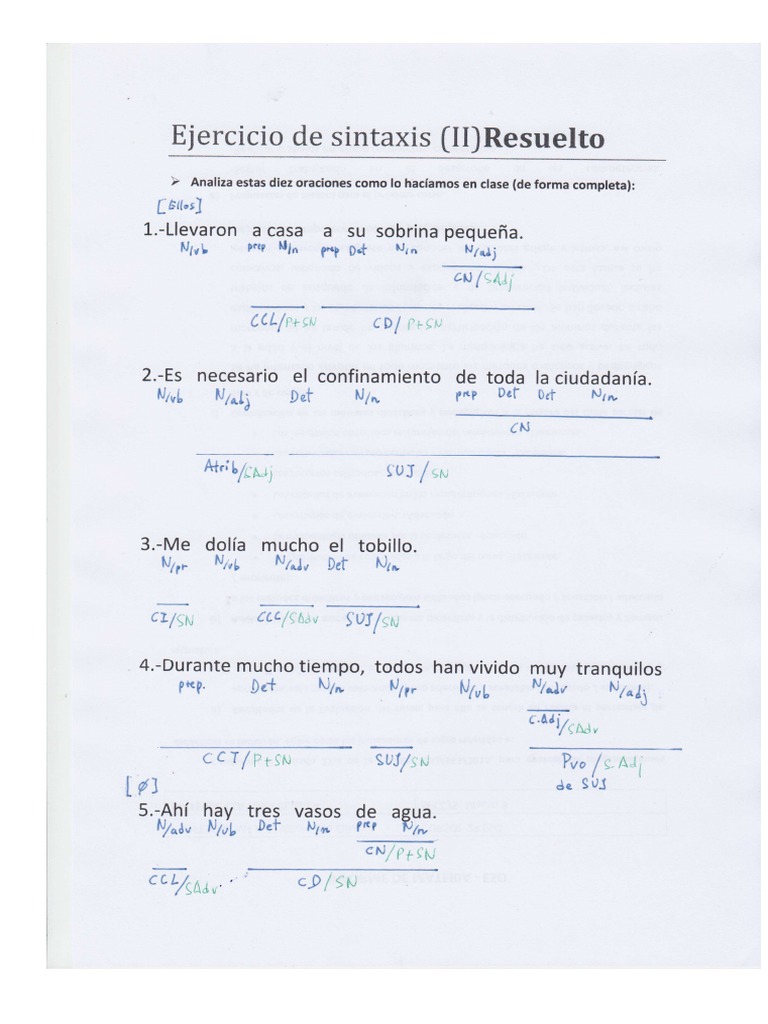 Ejercicio de sintaxis (II)Resuelto
➢ Analiza estas diez oraciones como lo hacíamos en clase (de forma completa):
[Ellos]
1.-Llevaron a casa a su sobrina pequeña.
N/vb prep N/n prep Det N/n N/adj
CN/SAdj
CCL/P+SN CD/P+SN
2.-Es necesario el confinamiento de toda la ciudadanía.
N/vb N/adj Det N/n prep Det Det N/n
CN
Atrib/SAdj SUJ/SN
3.-Me dolía mucho el tobillo.
N/pr N/vb N/adv Det N/n
CI/SN CCC/SAdv SUJ/SN
4.-Durante mucho tiempo, todos han vivido muy tranquilos
prep. Det N/n N/pr N/vb N/adv N/adj
C.Adj/SAdv
CCT/P+SN SUJ/SN Pvo/S.Adj
de SUJ
[Ø]
5.-Ahí hay tres vasos de agua.
N/adv N/vb Det N/n prep N/n
CN/P+SN
CCL/SAdv. CD/SN